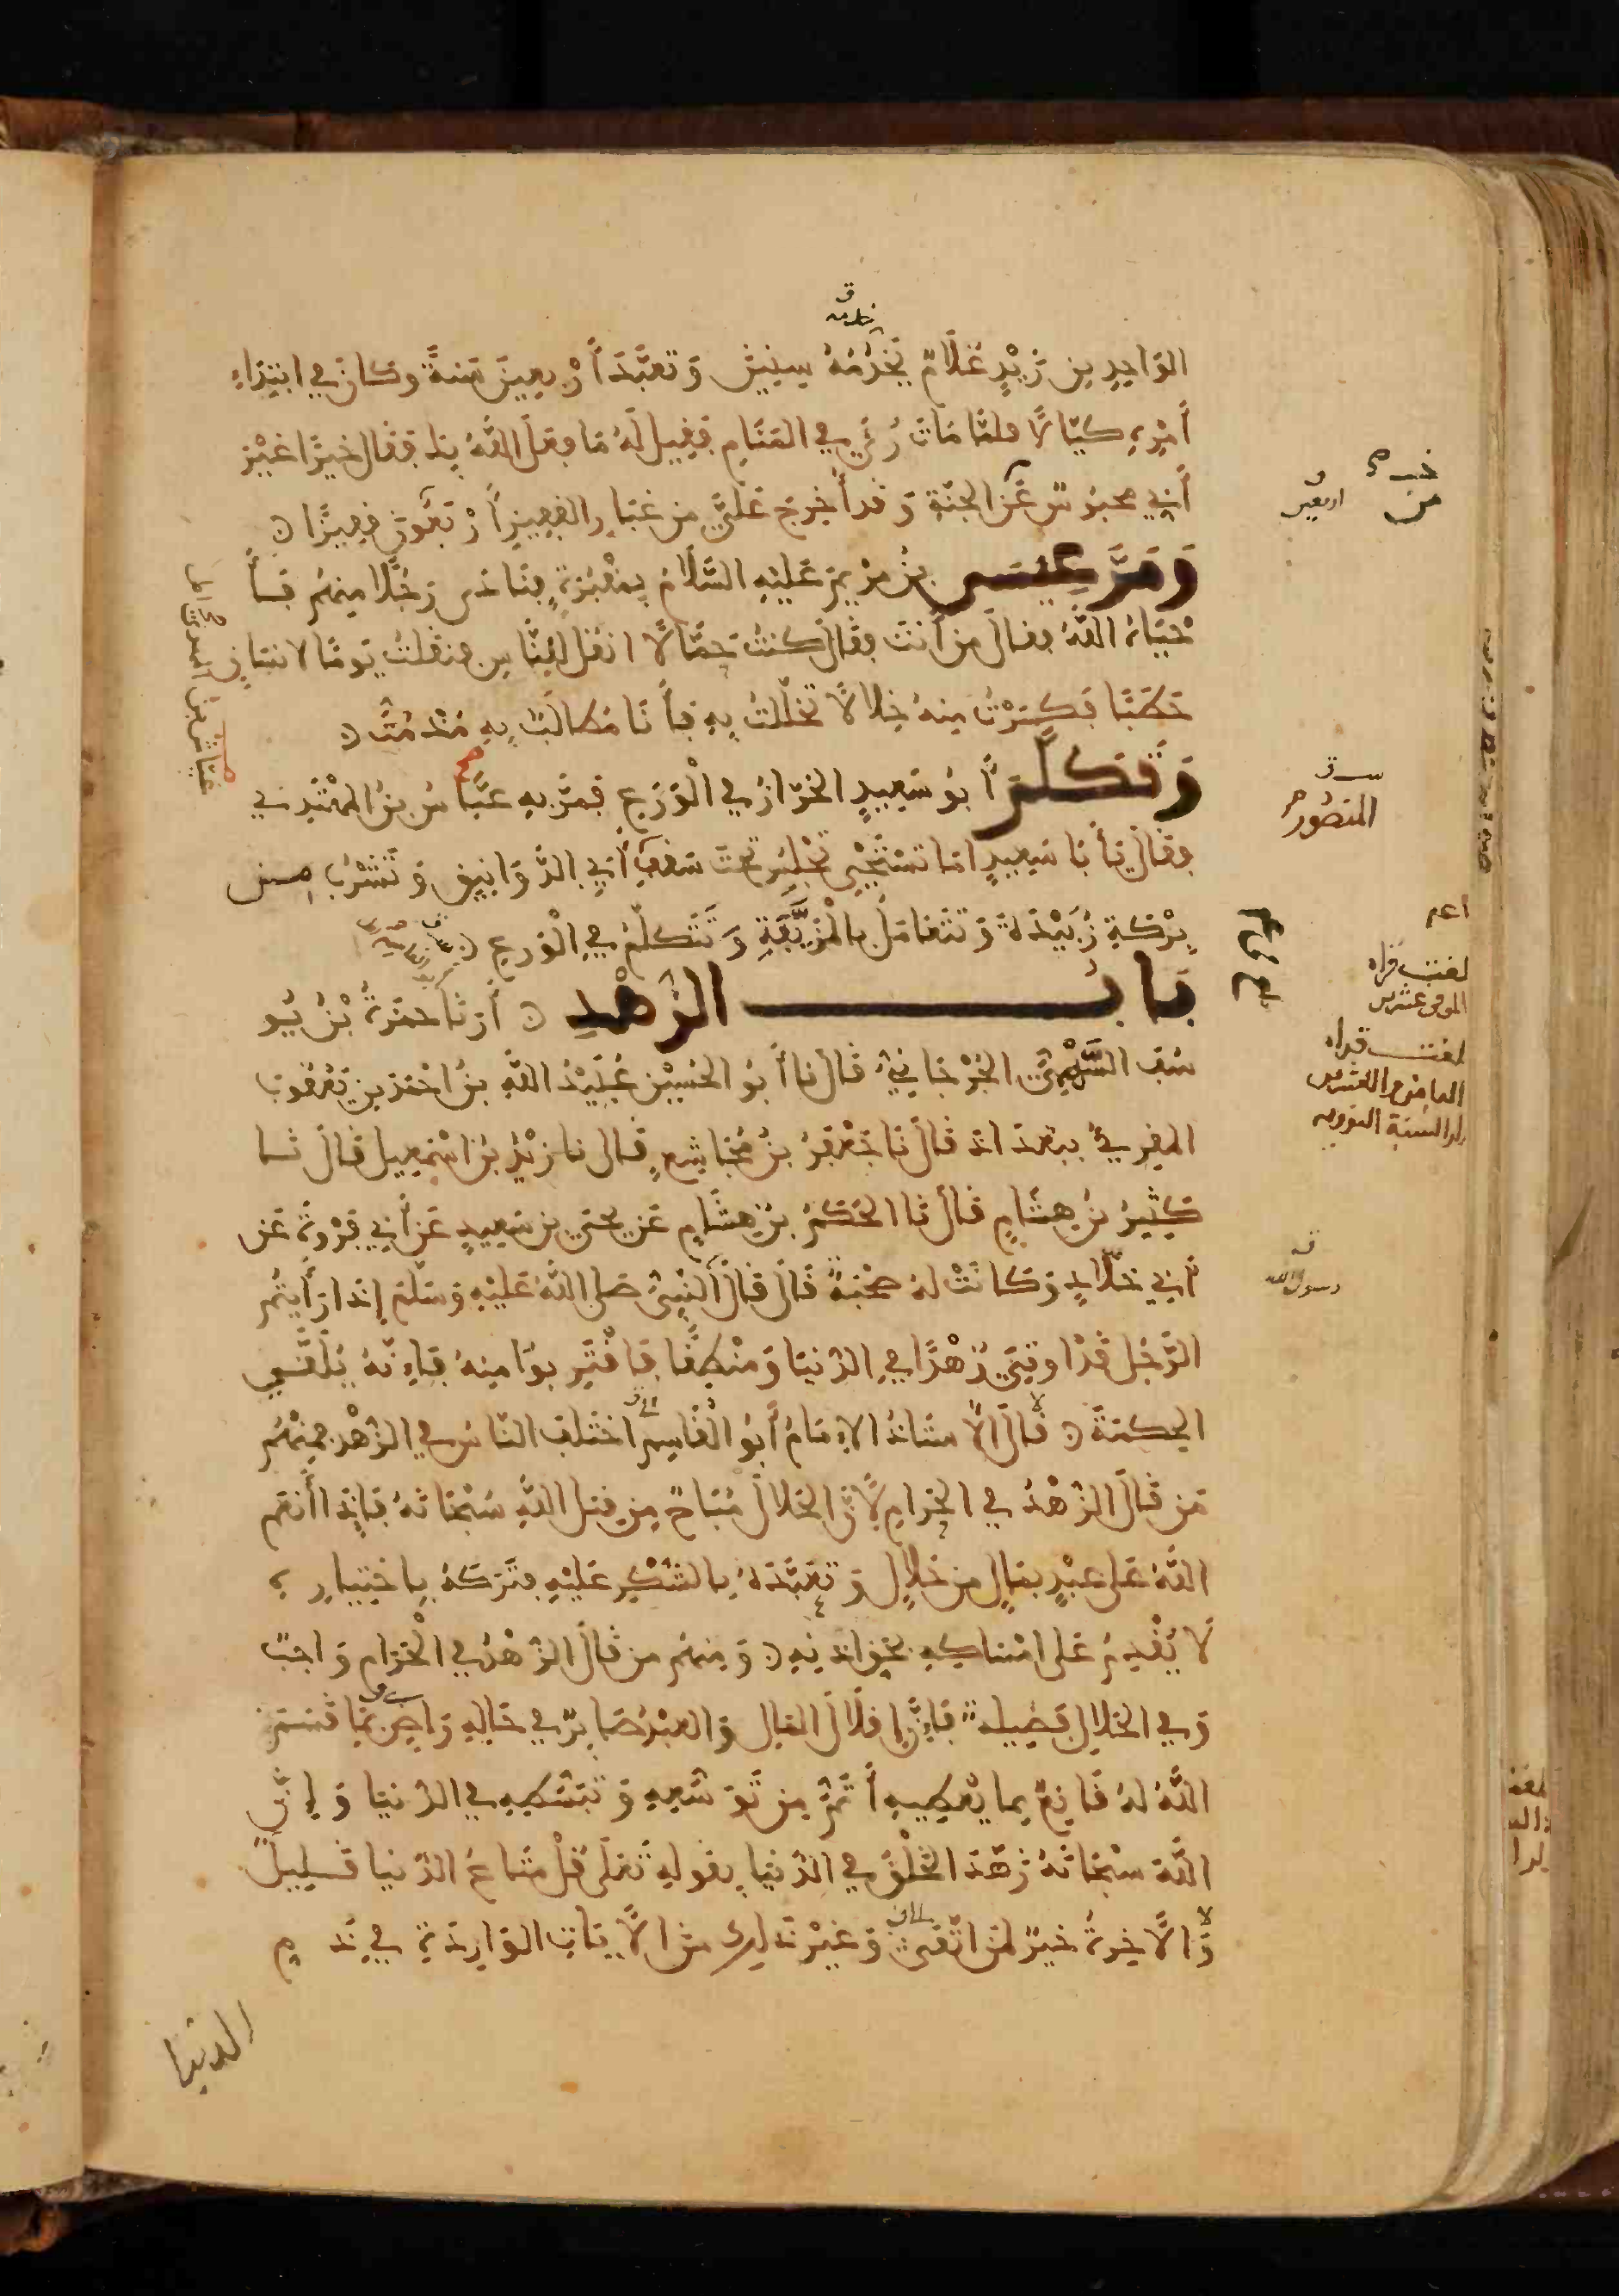 الوَاحِدِ بنِ زَيْدٍ غُلَامٌ يَخْدُمُهُ سِنِينَ وَتَعَبَّدَ أَرْبعِينَ سَنَةً وكَانَ فِي ابْتِدَاءِ
أَمْرِهِ كيَّالًا فلمَّا مَاتَ رُئِيَ فِي المَنَامِ فَقِيلَ لَهُ مَا فعَلَ اللهُ بِكَ فقَال خيرًا غيْرَ
أَنِّي محبُوسٌ عَنِ الجَنَّةِ وَقَد أُخْرِجَ عَلَيَّ مِن غُبَارِ القَفِيزِ أَرْبَعُونَ قفِيزًا
وَمَرَّ عِيسَى بنُ مرْيمَ عَلَيْهِ السَّلَامُ بِمَقْبُرَةٍ فنَادَى رَجُلًا مِنهُم فَأَ
حْيَاهُ اللهُ فقالَ مَن أَنتَ فقَالَ كُنتُ حَمَّالًا انقُل للِنَّاسِ فنقَلتُ يَومًا لانسَانٍ
حَطَبًا فَكسَرْتُ مِنهُ خِلالًا تخَلَّلتُ بِهِ فَأَنَا مُطَالَبٌ بِهِ مُنْذُ مُتُّ
وَتَكَلَّمَ أَبُو سَعِيدٍ الخرَّازُ فِي الْوَرَعِ فَمَرَّ بِهِ عَبَّاسُ بنُ المهْتَدِي
فقَالَ يَأَبَا سَعِيدٍ امَا تَسْتَحْيِي تَجْلِسُ تَحتَ سَقفِ أَبِي الدَّوَانِيقِ وَتَشْرَبُ مِن
بِرْكَةِ زُبَيْدَةَ وَتَتَعَامَلُ بِالْمُزَيَّفَةِ وَتَتَكَلَّمُ فِي الْوَرعِ
بَابُ الزُّهْدِ أَرَنَا حمزَةُ بْنُ يُو
سُفَ السَّهْمِيُّ الجُرْجَانِيُّ قَالَ نا أَبُو الحُسَيْنِ عُبَيْدُ اللهِ بنُ احْمَدَ بنِ يَعْقُوبَ
المقرِيُّ ببَغْدَاذَ قَالَ نَا جَعْفَرُ بنُ مُجَاشِعٍ قَالَ نا زَيْدُ بنُ اسْمَعِيل قَالَ نا
كَثِيرُ بنُ هِشَامٍ قَالَ نَا الحَكَمُ بنُ هِشَامٍ عَن يحيَى بنِ سَعِيدٍ عَن أَبِي فَرْوَةَ عَن
أَبِي خَلَّادٍ وَكَانَتْ لَهُ صُحْبَةٌ قَالَ قَالَ النبِيُّ صَلى اللهُ عَلَيْهِ وَسَلَّمَ إِذَا رَأَيْتُمُ
الرَّجُلَ قَدْ اوتِيَ زُهْدًا فِي الدُّنيَا وَمَنْطِقًا فَاقْتَرِبوُا مِنهُ فَإِنَّهُ يُلَقَّى
الحِكمَةَ قَالَ الأُسْتَاذُ الإمَامُ أَبُو الْقَاسِمِ اخْتَلفَ النَّاسُ فِي الزُّهْدِ فمِنْهُم
مَن قَالَ الزُّهْدُ فِي الحَرَامِ لِأَنَّ الحَلَالَ مُبَاحٌ مِن قِبَلِ اللهِ سُبْحَانَهُ فَإِذَا أَنعَمَ
اللهُ عَلَى عَبْدٍ بمَالٍ مِن حَلَالٍ وَتَعَبَّدَهُ بِالشُّكْرِ عَلَيْهِ فتَركُهُ بِاخْتِيَارِهِ
لَا يُقْدِمُ عَلَى امْسَاكِهِ بحَقِ اذنِهِ وَمِنهُم مَن قَالَ الزُّهْدُ فِي الْحَرَامِ وَاجِبٌ
وَفِي الحَلالِ فَضِيلَةٌ فَإِنَّ إِقلَالَ المَالِ وَالعَبْدُ صَابِرٌ فِي حَالِهِ رَاضٍ بمَا قَسَمَ
اللهُ لهُ قَانِعٌ بمَا يُعْطِيهِ أَتَمُّ مِن تَوَسُّعِهِ وَتَبَسُّطِهِ فِي الدُّنيَا وَإِنَّ
اللهَ سُبْحَانَهُ زَهَّدَ الخَلْقَ فِي الدُّنيَا بِقَولِهِ تَعَلَى قُلْ مَتَاعُ الدُّنيَا قَلِيلٌ
وَالأَخِرَةُ خيرٌ لِمَنِ اتَّقَى وَغيْرُ ذَلِكَ مِنَ الأَيَاتِ الوَارِدَةِ فِي ذَمِّ
الدنيا
اربعين
المنصور
رسول الله